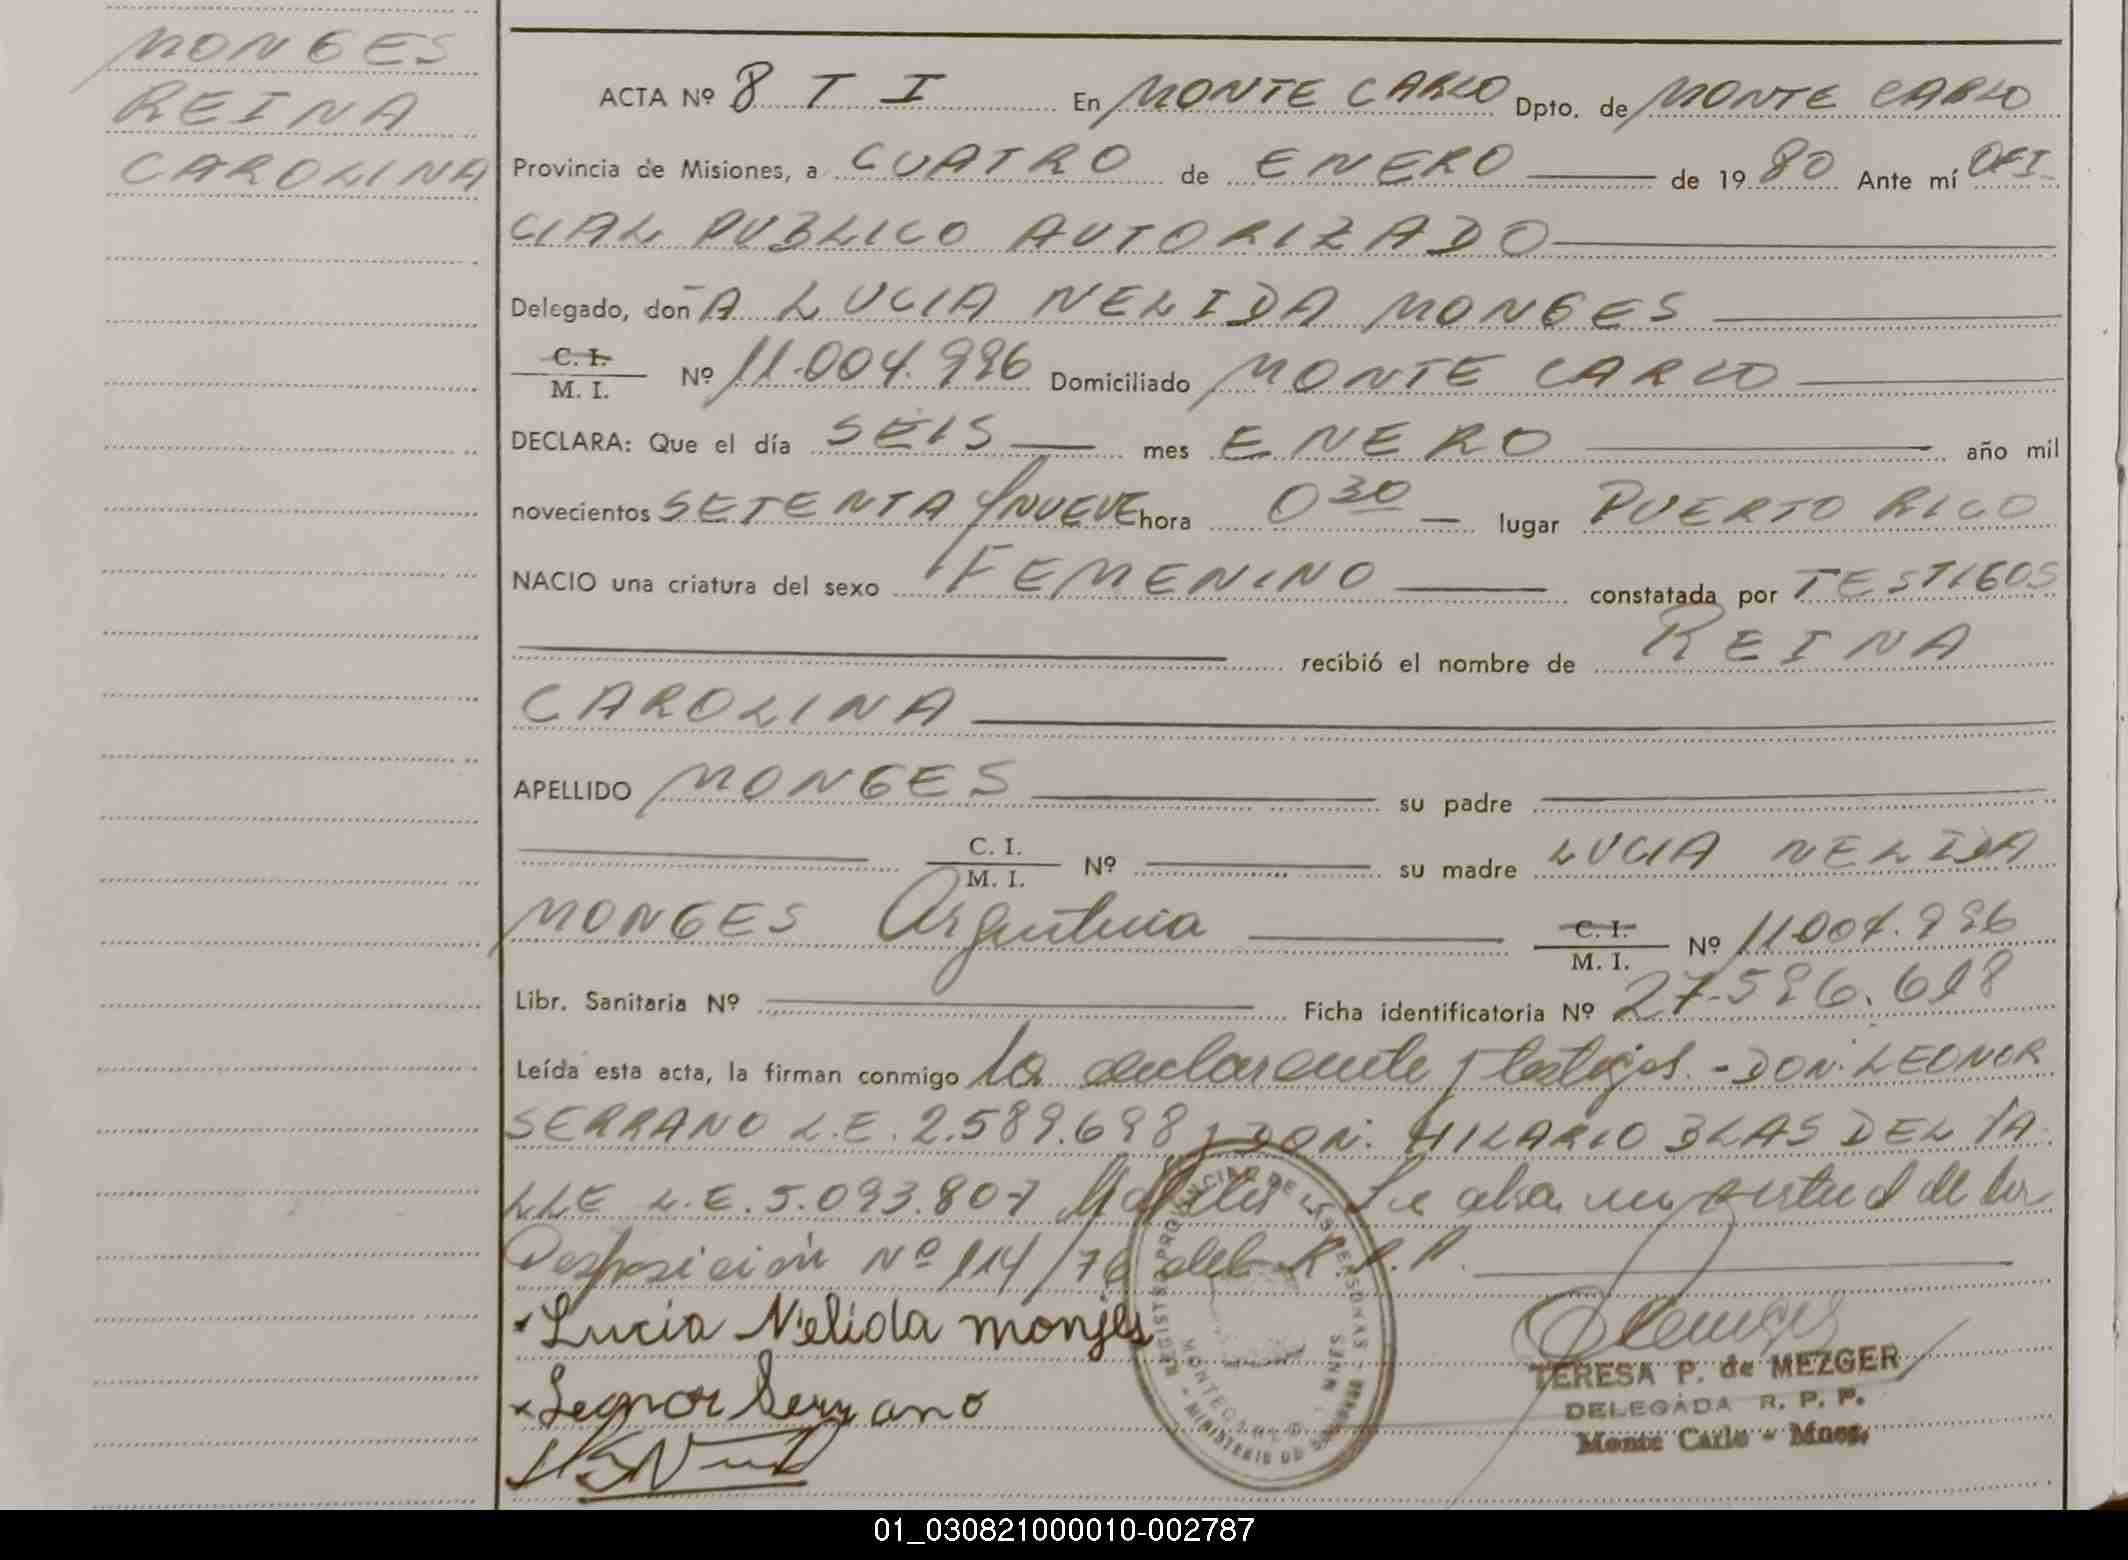 MONGES
REINA
CAROLINA
ACTA Nº 8 T I En MONTE CARLO Dpto. de MONTE CARLO
Provincia de Misiones, a CUATRO de ENERO de 1980 Ante mí OFI-
CIAL PUBLICO AUTORIZADO
Delegado, doñA LUCIA NELIDA MONGES
C. I. / M. I. Nº 11.004.996 Domiciliado MONTE CARLO
DECLARA: Que el día SEIS mes ENERO año mil
novecientos SETENTA y NUEVE hora 0 30 lugar PUERTO RICO
NACIO una criatura del sexo FEMENINO constatada por TESTIGOS
recibió el nombre de REINA
CAROLINA
APELLIDO MONGES su padre
C. I. / M. I. Nº su madre LUCIA NELIDA
MONGES Argentina C. I. / M. I. Nº 11.004.996
Libr. Sanitaria Nº Ficha identificatoria Nº 27.596.698
Leída esta acta, la firman conmigo la declarante y testigos.- DON: LEONOR
SERRANO L.E. 2.589.698 y DON: HILARIO BLAS DEL VA-
LLE L.E. 5.093.807 Se labra en virtud de la
Disposición Nº 114/76 del R.P.P.
Lucia Nelida monjes
Leonor Serrano
REGISTRO PROVINCIAL DE LAS PERSONAS
MONTECARLO - MISIONES
MINISTERIO DE GOBIERNO
TERESA P. de MEZGER
DELEGADA R. P. P.
Monte Carlo - Mnes.
01_030821000010-002787